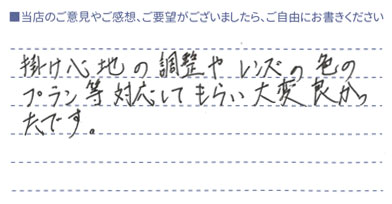 ■当店のご意見やご感想、ご要望がございましたら、ご自由にお書きください
掛け心地の調整やレンズの色の
プラン等対応してもらい大変良かっ
たです。